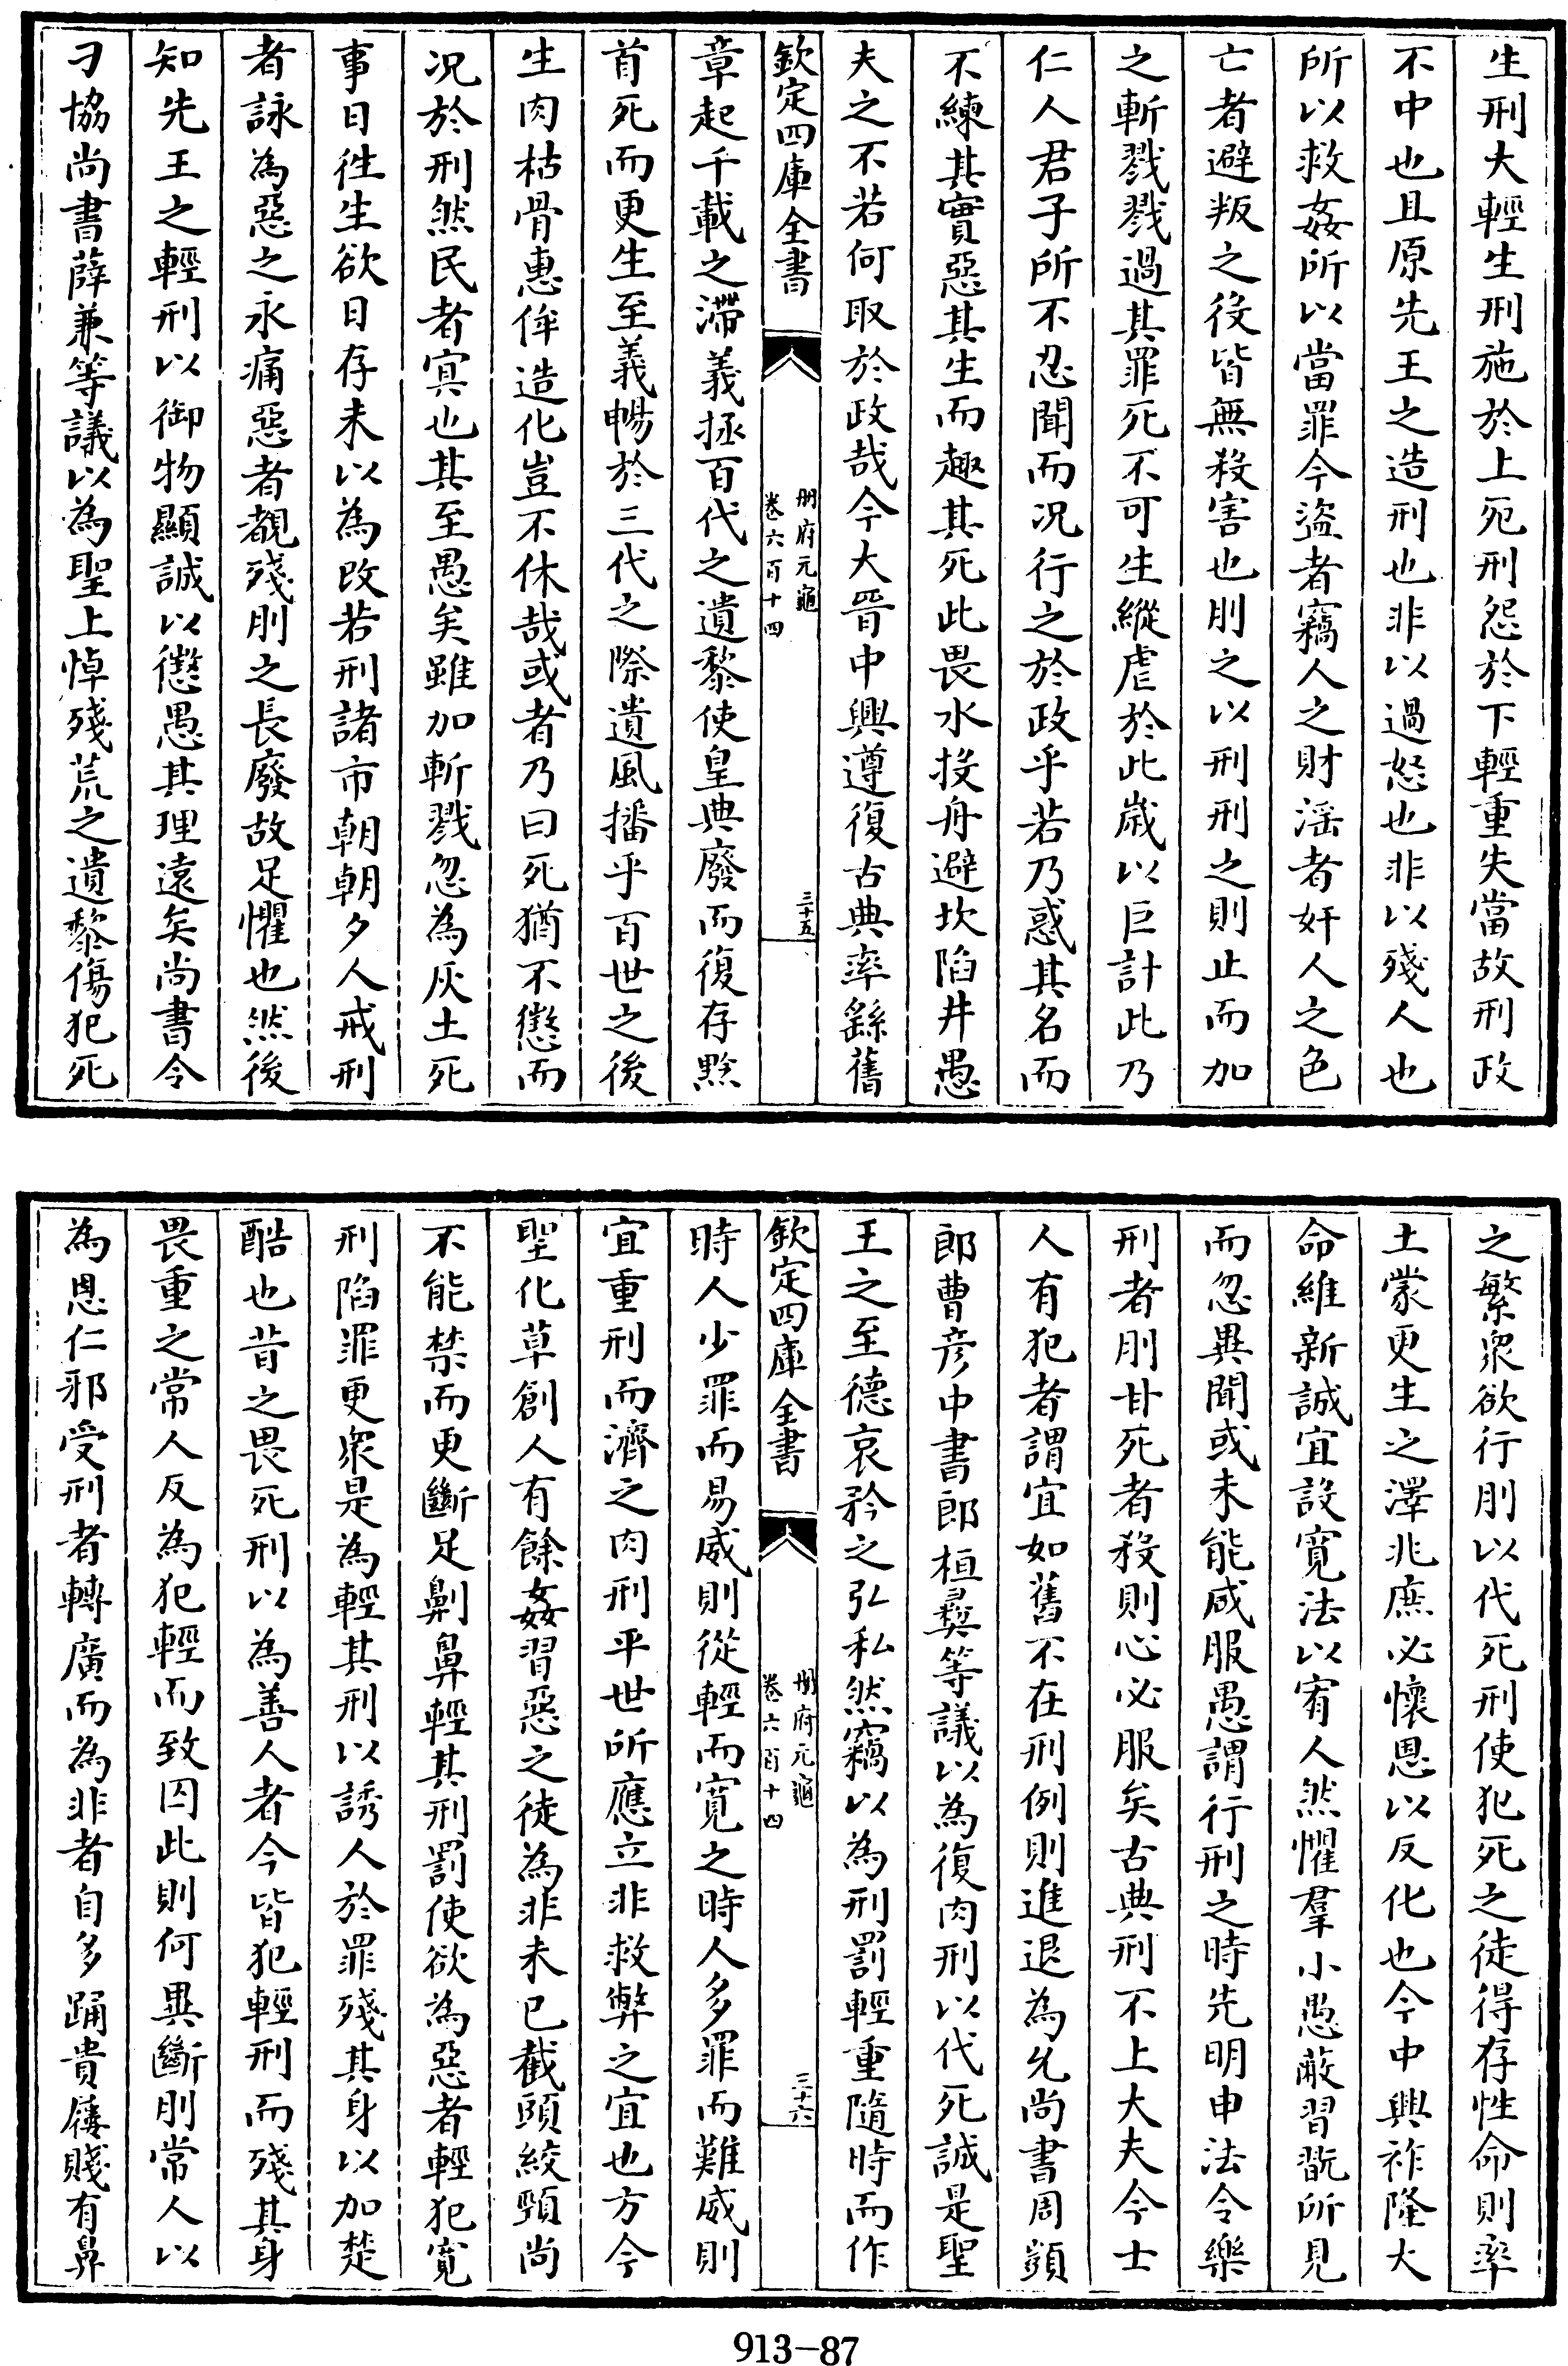 生刑大輕生刑施於上死刑怨於下輕重失當故刑政
不中也且原先王之造刑也非以過怒也非以殘人也
所以救姦所以當罪今盜者竊人之財淫者奸人之色
亡者避叛之役皆無殺害也刖之以刑刑之則止而加
之斬戮戮過其罪死不可生縱虐於此歲以巨計此乃
仁人君子所不忍聞而况行之於政乎若乃惑其名而
不練其實惡其生而趣其死此畏水投舟避坎陷井愚
夫之不若何取於政哉今大晉中興遵復古典率繇舊
欽定四庫全書
冊府元龜
卷六百十四
三十五
章起千載之滯義拯百代之遺黎使皇典廢而復存黥
首死而更生至義暢於三代之際遺風播乎百世之後
生肉枯骨惠侔造化豈不休哉或者乃曰死猶不懲而
况於刑然民者冥也其至愚矣雖加斬戮忽為灰土死
事日徃生欲日存未以為改若刑諸市朝朝夕人戒刑
者詠為惡之永痛惡者覩殘刖之長廢故足懼也然後
知先王之輕刑以御物顯誠以懲愚其理遠矣尚書令
刁協尚書薛兼等議以為聖上悼殘荒之遺黎傷犯死
之繁衆欲行刖以代死刑使犯死之徒得存性命則率
土蒙更生之澤兆庶必懷恩以反化也今中興祚隆大
命維新誠宜設寛法以宥人然懼羣小愚蔽習翫所見
而忽異聞或未能咸服愚謂行刑之時先明申法令樂
刑者刖甘死者殺則心必服矣古典刑不上大夫今士
人有犯者謂宜如舊不在刑例則進退為允尚書周顗
郎曹彦中書郎桓彞等議以為復肉刑以代死誠是聖
王之至德哀矜之弘私然竊以為刑罰輕重隨時而作
欽定四庫全書
冊府元龜
卷六百十四
三十六
時人少罪而易威則從輕而寛之時人多罪而難威則
宜重刑而濟之肉刑平世所應立非救弊之宜也方今
聖化草創人有餘姦習惡之徒為非未已截頭絞頸尚
不能禁而更斷足劓鼻輕其刑罰使欲為惡者輕犯寛
刑陷罪更衆是為輕其刑以誘人於罪殘其身以加楚
酷也昔之畏死刑以為善人者今皆犯輕刑而殘其身
畏重之常人反為犯輕而致囚此則何異斷刖常人以
為恩仁邪受刑者轉廣而為非者自多踊貴屨賤有鼻
913-87